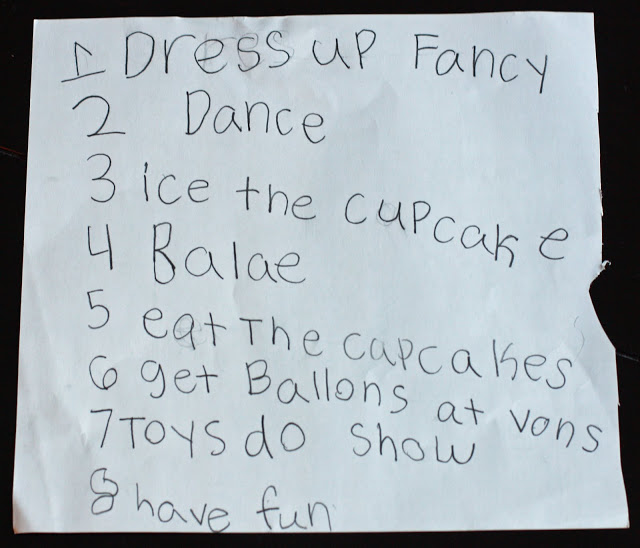 1 Dress up Fancy
2 Dance
3 ice the cupcake
4 Balae
5 eat The cupcakes
6 get Ballons at vons
7 Toys do show
8 have fun